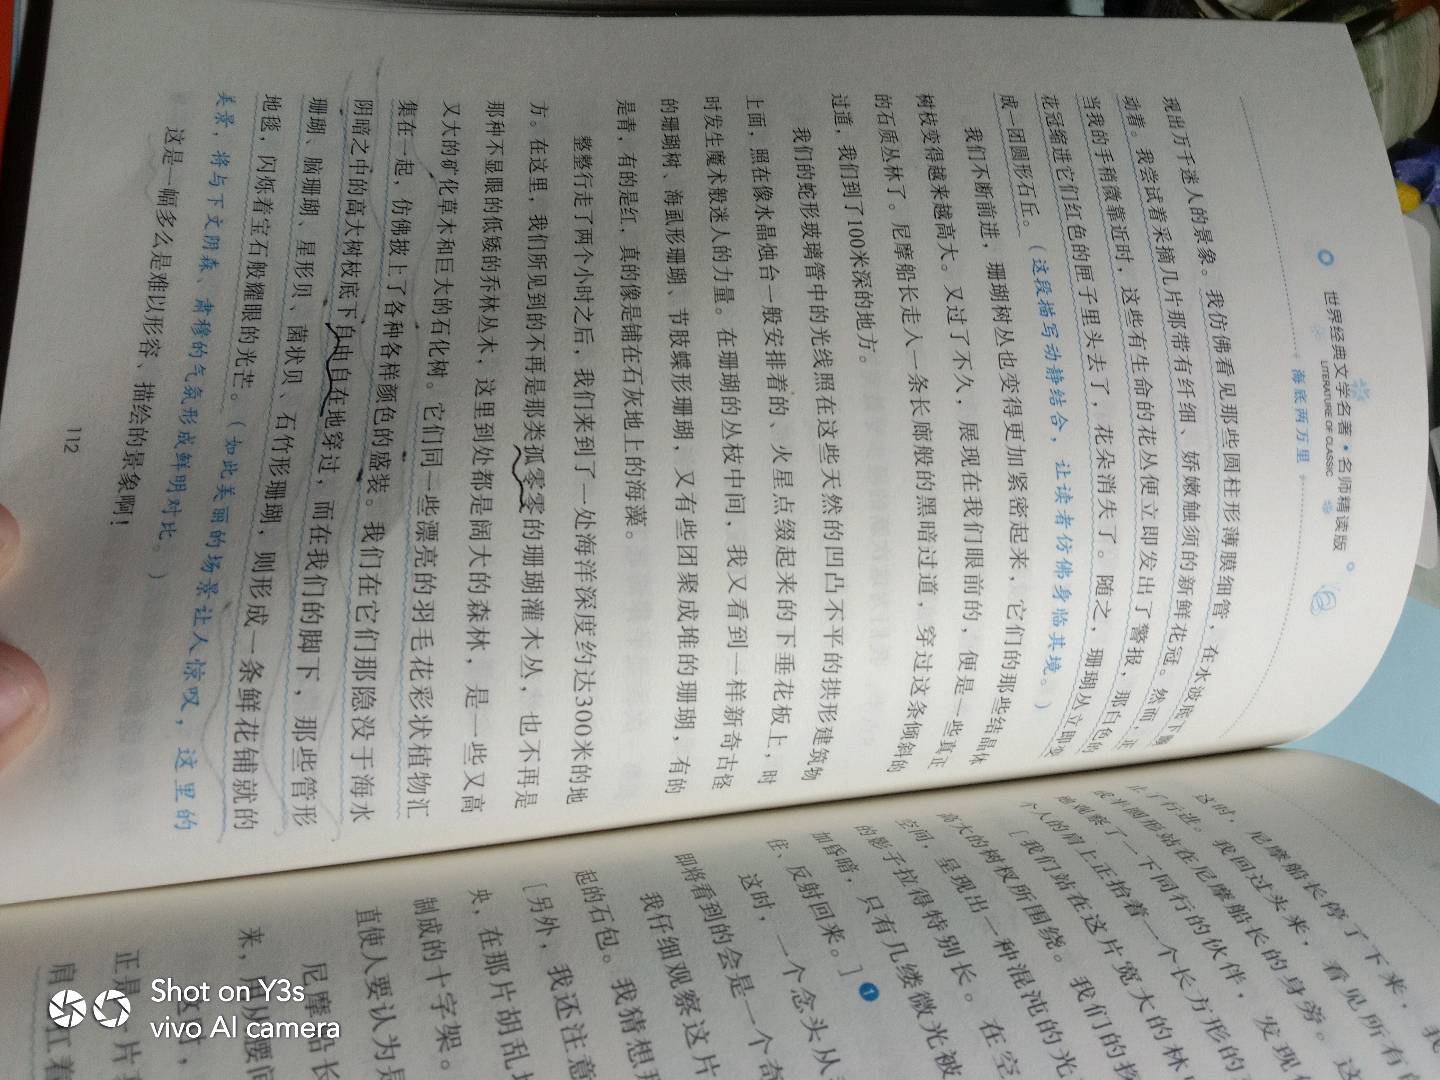 世界经典文学名著·名师精读版
LITERATURE OF CLASSIC
海底两万里
现出万千迷人的景象。我仿佛看见那些圆柱形薄膜细管，在水波底下
动着。我尝试着采摘几片那带有纤细、娇嫩触须的新鲜花冠。然而，
当我的手稍微靠近时，这些有生命的花丛便立即发出了警报，那白色的
花冠缩进它们红色的匣子里头去了，花朵消失了。随之，珊瑚丛立即变
成一团圆形石丘。（这段描写动静结合，让读者仿佛身临其境。）
我们不断前进，珊瑚树丛也变得更加紧密起来，它们的那些结晶体
树枝变得越来越高大。又过了不久，展现在我们眼前的，便是一些真正
的石质丛林了。尼摩船长走入一条长廊般的黑暗过道，穿过这条倾斜的
过道，我们到了100米深的地方。
我们的蛇形玻璃管中的光线照在这些天然的凹凸不平的拱形建筑物
上面，照在像水晶烛台一般安排着的、火星点缀起来的下垂花板上，时
时发生魔术般迷人的力量。在珊瑚的丛枝中间，我又看到一样新奇古怪
的珊瑚树、海虱形珊瑚、节肢蝶形珊瑚，又有些团聚成堆的珊瑚，有的
是青，有的是红，真的像是铺在石灰地上的海藻。
整整行走了两个小时之后，我们来到了一处海洋深度约达300米的地
方。在这里，我们所见到的不再是那类孤零零的珊瑚灌木丛，也不再是
那种不显眼的低矮的乔林丛木，这里到处都是阔大的森林，是一些又高
又大的矿化草木和巨大的石化树。它们同一些漂亮的羽毛花彩状植物汇
集在一起，仿佛披上了各种各样颜色的盛装。我们在它们那隐没于海水
阴暗之中的高大树枝底下自由自在地穿过，而在我们的脚下，那些管形
珊瑚、脑珊瑚、星形贝、菌状贝、石竹形珊瑚，则形成一条鲜花铺就的
地毯，闪烁着宝石般耀眼的光芒。（如此美丽的场景让人惊叹，这里的
美景，将与下文阴森、肃穆的气氛形成鲜明对比。）
这是一幅多么是难以形容、描绘的景象啊！
112
这时，尼摩船长停了下来，我
止了行进。我回过头来，看见所有的
成半圆形站在尼摩船长的身旁。这
地观察了一下同行的伙伴，发现
个人的肩上正抬着一个长方形的
［我们站在这片宽大的林
高大的树杈所围绕。我们的探
空间，呈现出一种混沌的光
的影子拉得特别长。在空
加昏暗，只有几缕微光被
住、反射回来。］❶
这时，一个念头从
即将看到的会是一个奇
我仔细观察这片
起的石包。我猜想
［另外，我还注意
央，在那片胡乱
制成的十字架。
直使人要认为是
尼摩船长
来，后从腰间
这时，
正是一片
肩上扛着
Shot on Y3s
vivo AI camera